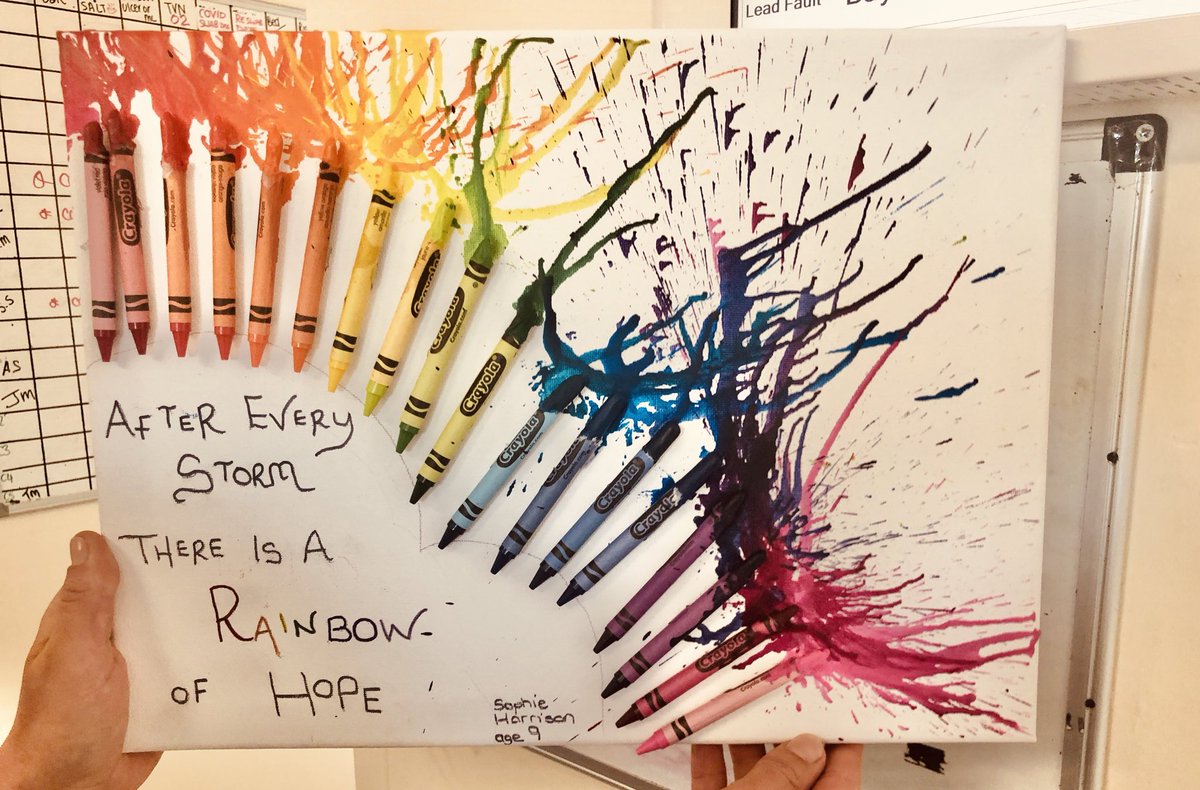 SALT
ulcer or
TVN
02
COVID
SWAB
Bed
Lead Fault
Crayola
Crayola
Crayola
Crayola
Crayola
Crayola
Crayola
Crayola
Crayola
AS
Jm
Jm
AFTER EVERY
STORM
THERE IS A
RAINBOW-
OF HOPE
Sophie
Harrison
age 9